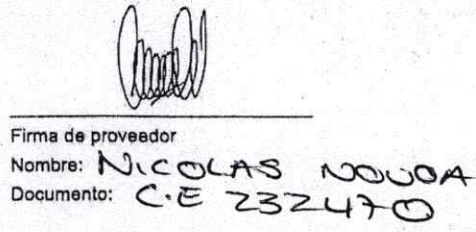 Firma de proveedor
Nombre: NICOLAS NOVOA
Documento: C.E 232470